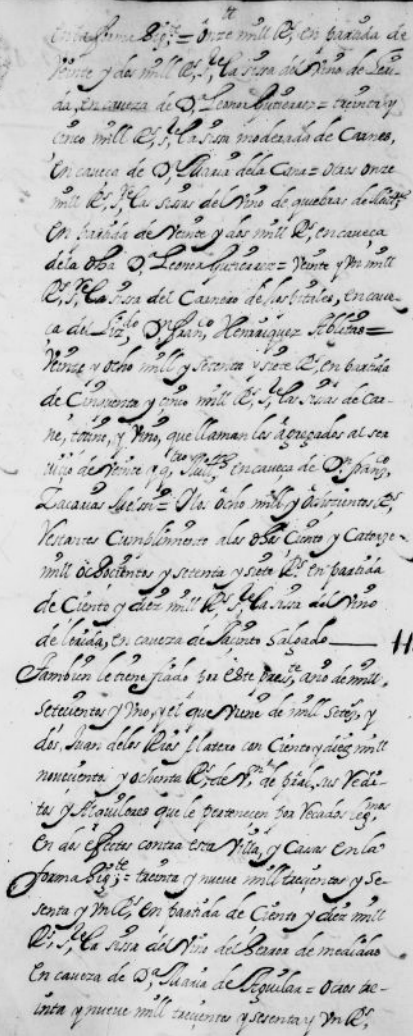 en la forma Sigte = onze mill Rs, en partida de
Veinte y dos mill Rs, Sre la sisa del Vino de Leri-
da, en caveza de Da Leonor Gutierrez = treinta y
cinco mill Rs, Sre la sisa moderada de Carnes,
en caveca de Da Maria de la Cana = otros onze
mill Rs, Sre las sisas del Vino de quiebras de
en partida de Veinte y dos mill Rs, en caveça
de la dha Da Leonor Gutierrez = Veinte y Un mill
Rs, Sre la sisa del Carnero de hospitales, en cave-
ca del Lizdo Dn Franco Henrriquez Ablitas =
Veinte y ocho mill y Setenta y siete Rs, en partida
de Cinquenta y cinco mill Rs, Sre las sisas de Car-
ne, toçino, y Vino, que llaman los agregados al ser
uiçio de Veinte y qtro Mills, en caveca de Dn Franco
Zacarias = Y los ocho mill y Rs,
restantes Cumplimiento a los dhos Ciento y Catorze
mill ochocientos y setenta y siete Rs en partida
de Ciento y diez mill Rs, Sre la sisa del Vino
de lerida, en caveza de Jaçinto Salgado
Tambien le tiene fiado por este preste año de mill
Setecientos y Vno, y el que Viene de mill Setezs y
dos, Juan de los Rios Platero con Ciento y diez mill
novecientos y ochenta Rs de Vn de pral, sus Redi-
tos y Alquileres que le pertenecen por Recados legmos
en dos efectos contra esta Villa, y Casas en la
forma Sigte = treinta y nueve mill trecientos y Se-
senta y Vn Rs, en partida de Ciento y diez mill
Rs, Sre la sisa del Vino del Reror de mealdado
en caveza de Da Maria de Aguilar = otros tre-
inta y nueve mill trecientos y sesenta y Vn Rs,